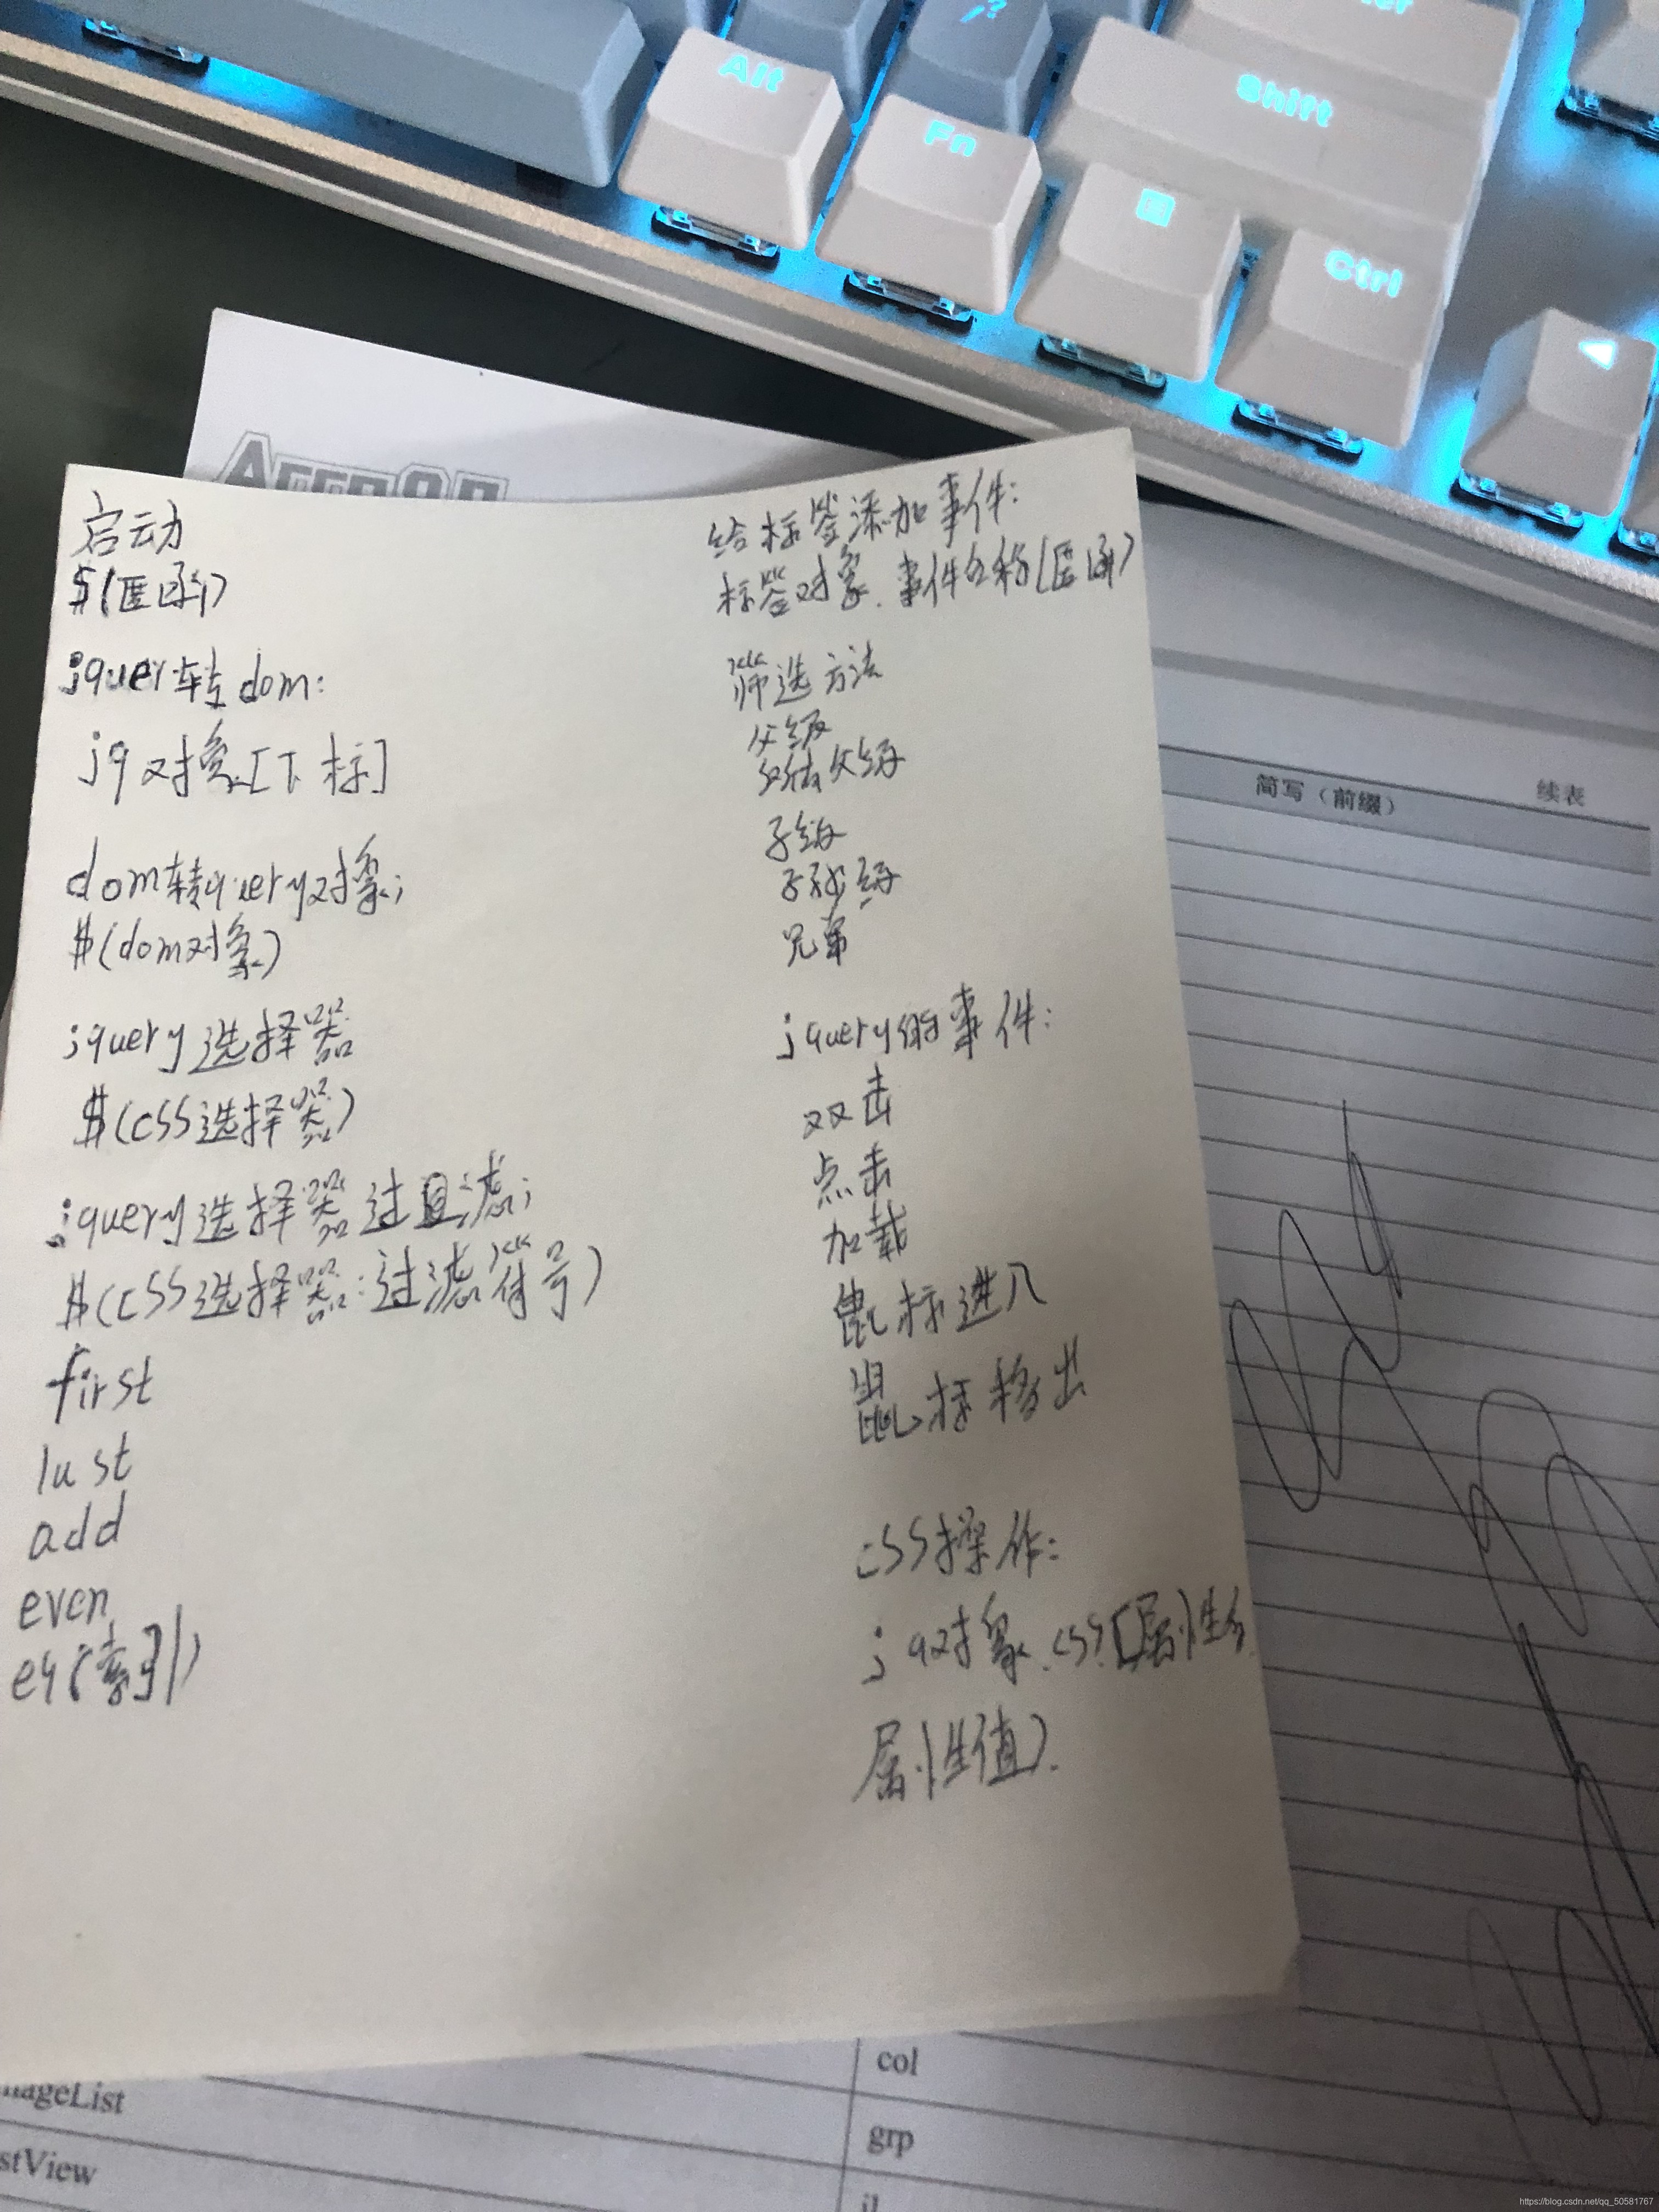 Alt
Fn
Shift
Ctrl
启动
$(匿函)
jquer转dom:
jq对象[下标]
dom转query对象;
$(dom对象)
jquery选择器
$(css选择器)
jquery选择器过滤;
$(css选择器:过滤符号)
first
last
add
even
eq(索引)
给标签添加事件:
标签对象.事件名称(匿函)
筛选方法
父级
父级
子级
子孙级
兄弟
jquery的事件:
双击
点击
加载
鼠标进入
鼠标移出
css操作:
jq对象.css(属性名
属性值).
简写（前缀）
续表
col
grp
nageList
stView
https://blog.csdn.net/qq_50581767